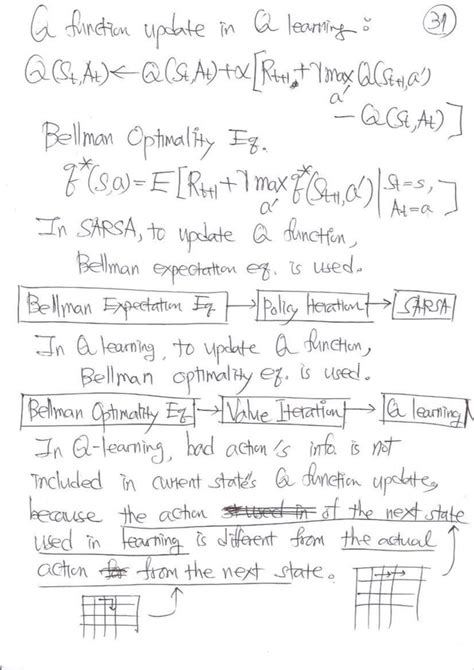 Q function update in Q learning :
31
Q(St,At)←Q(St,At)+α[Rt+1+γmax Q(St+1,a')
a'
−Q(St,At)]
Bellman Optimality Eq.
q*(s,a)=E[Rt+1+γ max q*(St+1,a')|St=s,
a' At=a]
In SARSA, to update Q function,
Bellman expectation eq. is used.
Bellman Expectation Eq → Policy Iteration → SARSA
In Q learning, to update Q function,
Bellman optimality eq. is used.
Bellman Optimality Eq → Value Iteration → Q learning
In Q-learning, bad action's info. is not
included in current state's Q function update,
because the action of the next state
used in learning is different from the actual
action from the next state.